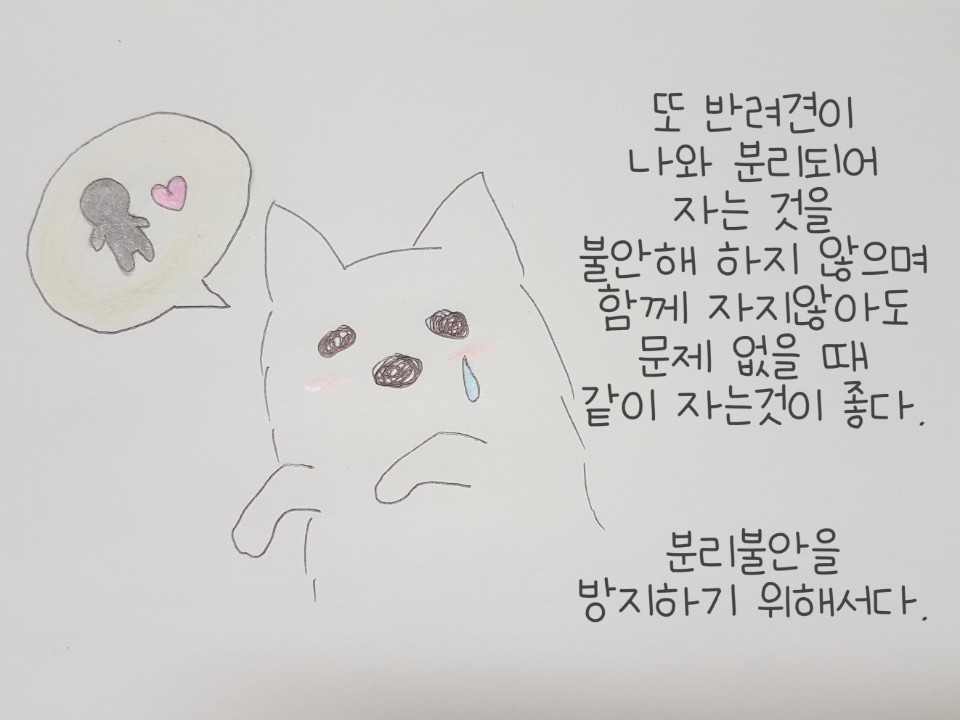 또 반려견이
나와 분리되어
자는 것을
불안해 하지 않으며
함께 자지않아도
문제 없을 때
같이 자는것이 좋다.
분리불안을
방지하기 위해서다.